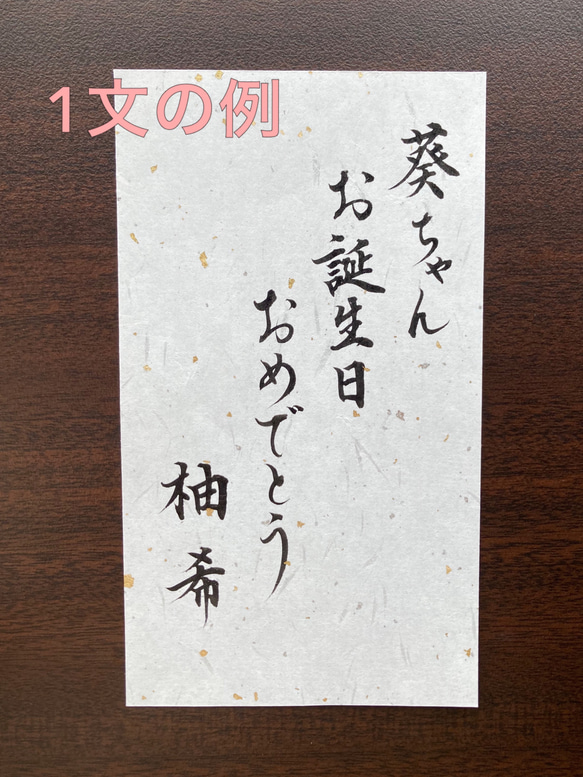 1文の例
葵ちゃん
お誕生日
おめでとう
柚希